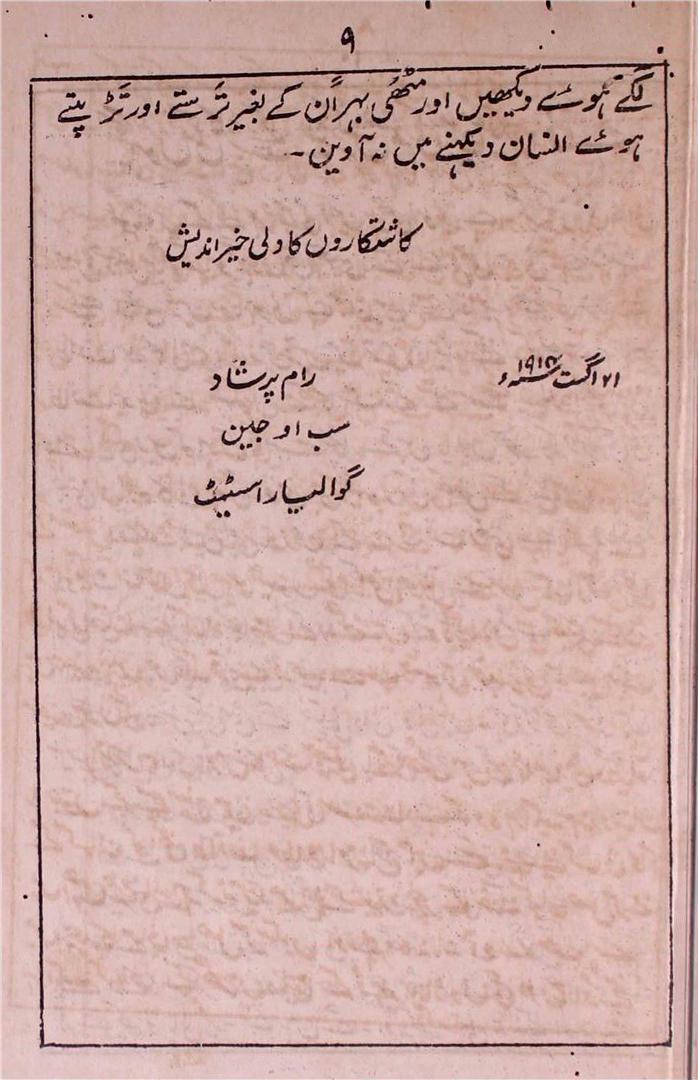 ۹
لگے ہوئے دیکھیں اور مٹھی بہر ان کے بغیر ترستے اور تڑپتے
ہوئے انسان دیکہنے میں نہ آوین۔
کاشتکاروں کا دلی خیر اندیش
۲۱ اگست سنہ ۱۹۱۴ء
رام پرشاد
سب اوجین
گوالیار اسٹیٹ